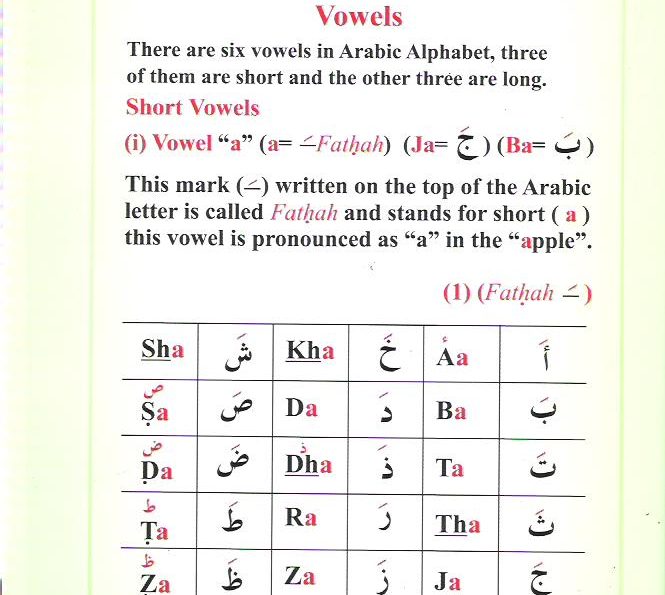 Vowels
There are six vowels in Arabic Alphabet, three
of them are short and the other three are long.
Short Vowels
(i) Vowel “a” (a= ـَ Fatḥah) (Ja= جَ ) (Ba= بَ )
This mark (ـَ) written on the top of the Arabic
letter is called Fatḥah and stands for short ( a )
this vowel is pronounced as “a” in the “apple”.
(1) (Fatḥah ـَ )
Sha شَ Kha خَ Áa أَ
ص
Ṣa صَ Da دَ Ba بَ
ض ذ
Ḍa ضَ Dha ذَ Ta تَ
ط
Ṭa طَ Ra رَ Tha ثَ
ظ
Ẓa ظَ Za زَ Ja جَ